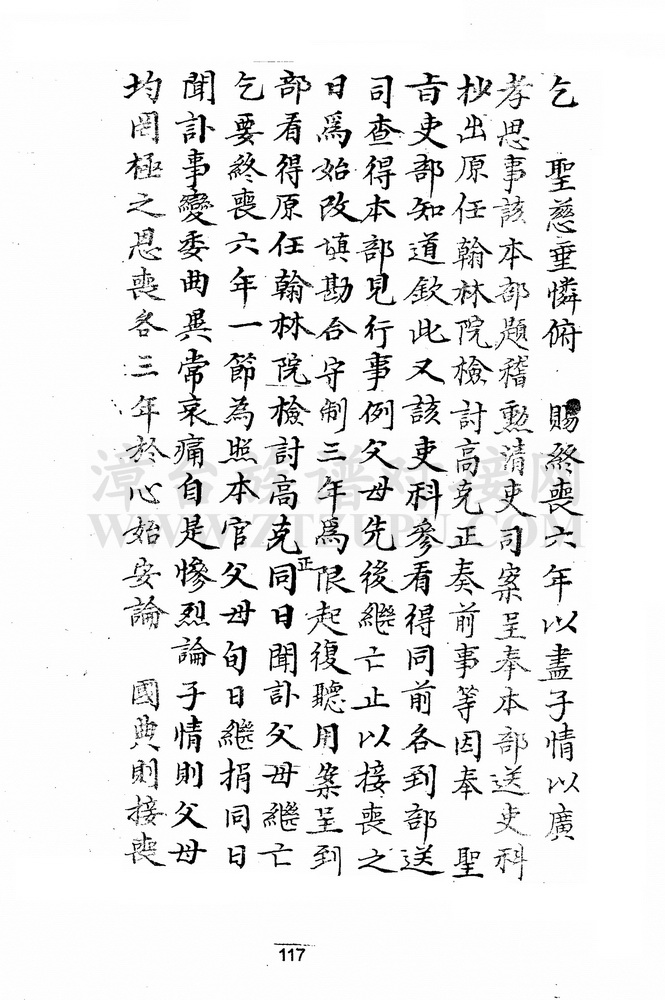 乞　聖慈垂憐俯　賜終喪六年以盡子情以廣
孝思事該本部題稽勲清吏司案呈奉本部送吏科
抄出原任翰林院檢討高克正奏前事等因奉　聖
旨吏部知道欽此又該吏科參看得同前各到部送
司查得本部見行事例父母先後繼亡止以接喪之
日爲始改填勘合守制三年爲限起復聽用案呈到
部看得原任翰林院檢討高克正同日聞訃父母繼亡
乞要終喪六年一節為照本官父母旬日繼捐同日
聞訃事變委曲異常哀痛自是慘烈論子情則父母
均罔極之恩喪各三年於心始安論　國典則接喪
漳台族谱对接网
WWW.ZTZUPU.COM
117